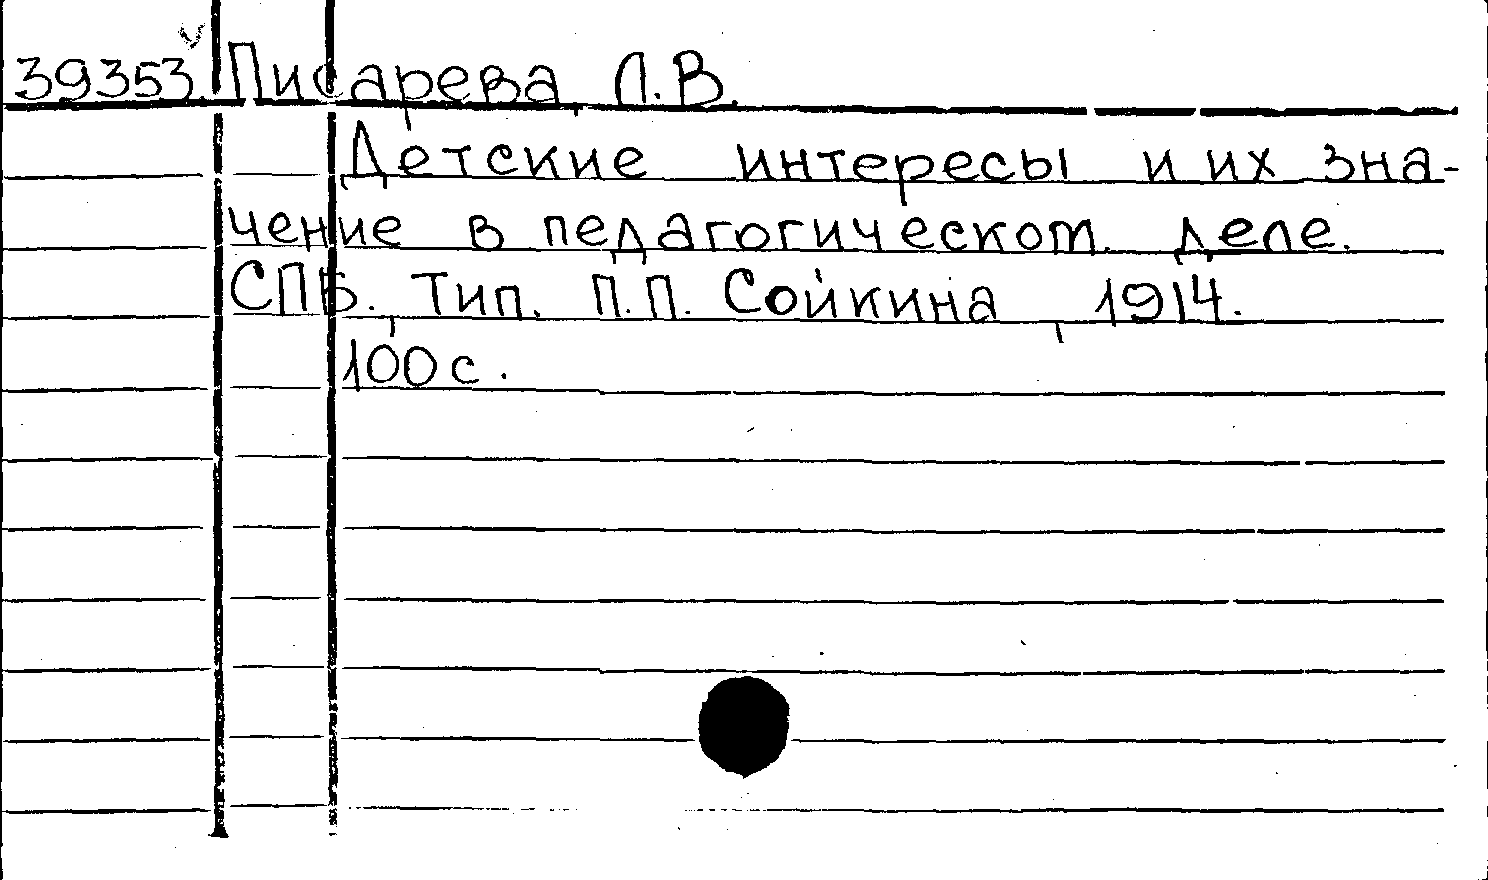 39353 Писарева, Л.В.
Детские интересы и их зна-
чение в педагогическом деле.
СПБ., Тип. П.П. Сойкина, 1914.
100 с.